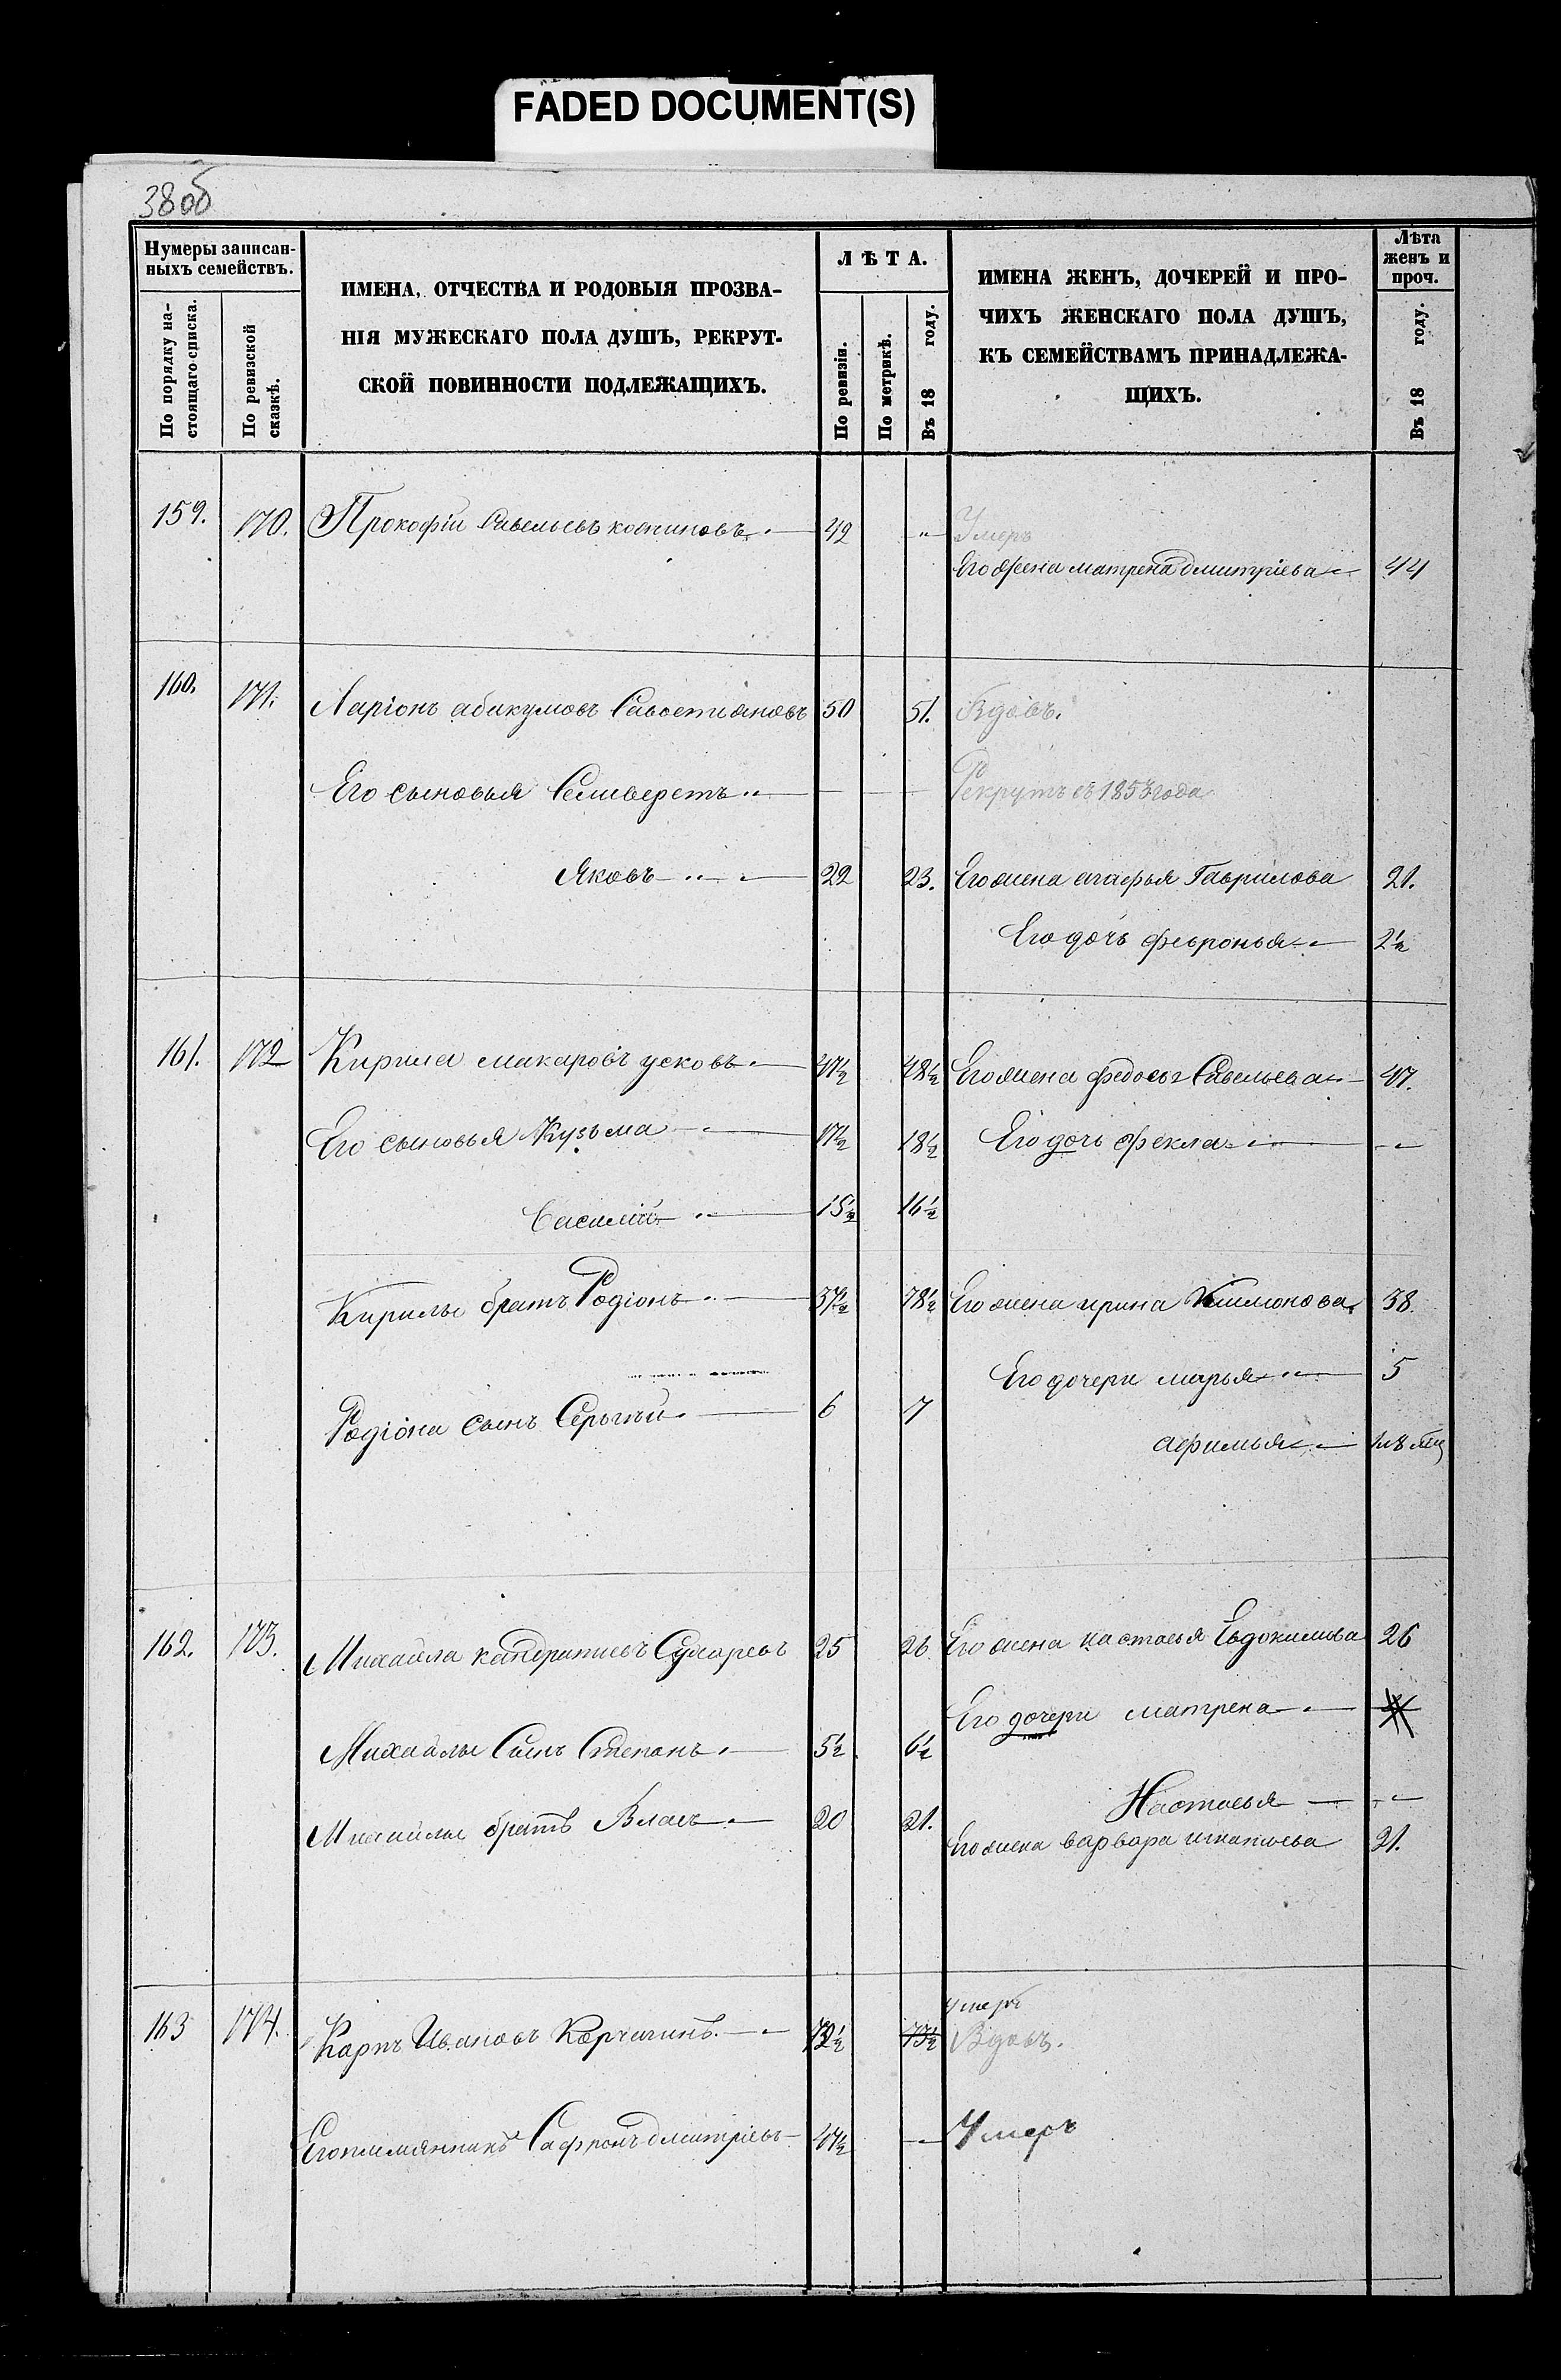 FADED DOCUMENT(S)
38об
Нумеры записан-
ныхъ семействъ.
По порядку на-
стоящаго списка.
По ревизской
сказкѣ.
ИМЕНА, ОТЧЕСТВА И РОДОВЫЯ ПРОЗВА-
НІЯ МУЖЕСКАГО ПОЛА ДУШЪ, РЕКРУТ-
СКОЙ ПОВИННОСТИ ПОДЛЕЖАЩИХЪ.
ЛѢТА.
По ревизіи.
По метрикѣ.
Въ 18 году.
ИМЕНА ЖЕНЪ, ДОЧЕРЕЙ И ПРО-
ЧИХЪ ЖЕНСКАГО ПОЛА ДУШЪ,
КЪ СЕМЕЙСТВАМЪ ПРИНАДЛЕЖА-
ЩИХЪ.
Лѣта
женъ и
проч.
Въ 18 году.
159. 170. Прокофіи Савельевъ 49 -"- Умеръ
Его жена матрена дмитріева 44
160. 171. Ларіонъ абакумовъ Савостиановъ 50 51. Вдовъ.
Его сыновья Селиверстъ — — Рекрутъ съ 1853 года
Яковъ 22 23. Его жена агафья Гаврилова 21.
Его дочь февронья 2½
161. 172 Кирила макаровъ усковъ 47½ 48½ Его жена федосья Савельева 47.
Его сыновья Кузьма 17½ 18½ Его дочь фекла -"-
Василій 15½ 16½
Кирилы братъ Родіонъ 37½ 38½ Его жена ирина 38.
Его дочери марья 5
Родіона сынъ Сергѣй 6 7
афимья
162. 173. Михайла кандратиевъ Сухаревъ 25 26 Его жена настасья Евдокимова 26
Его дочери матрена
Михайлы Сынъ Степанъ 5½ 6½
Настасья -"-
Михайлы братъ Власъ 20 21.
Его жена варвара игнатьева 21.
163 174. Карпъ Ивановъ Корчагинъ. 72½ 73½ умеръ
Вдовъ.
Его племянникъ Сафронъ дмитріевъ 47½ -"- Умеръ